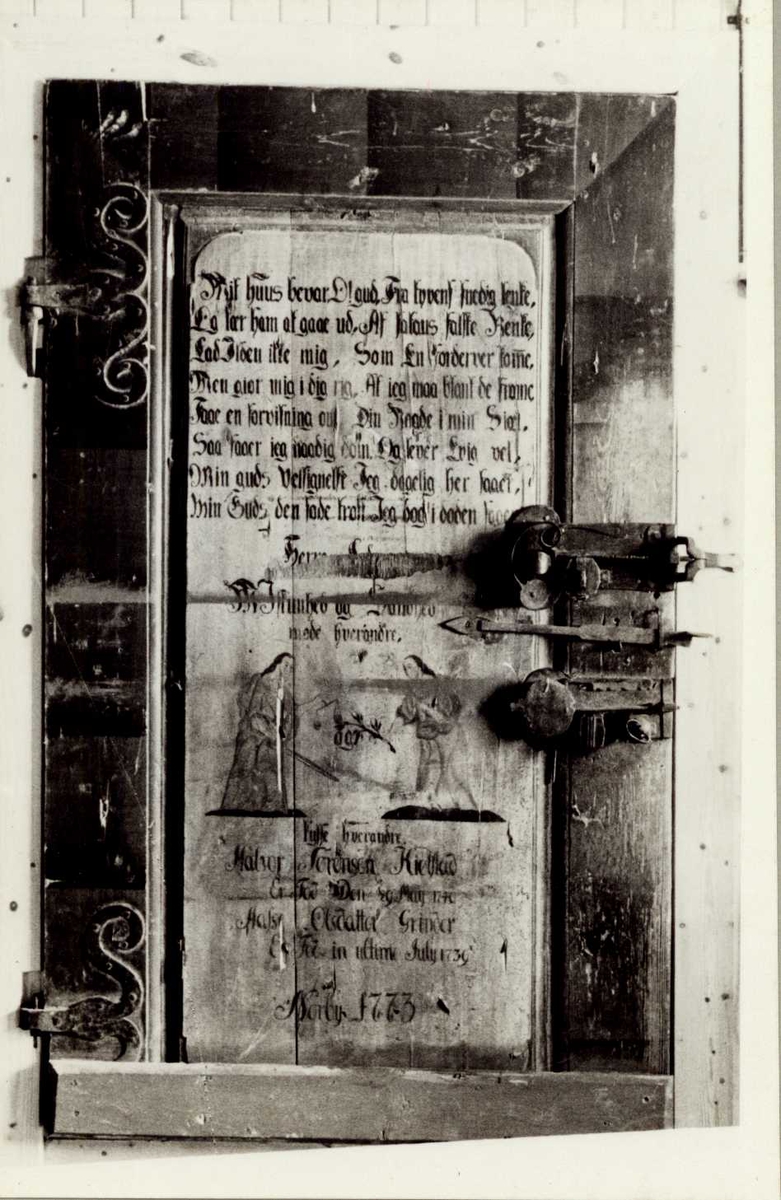 Mit huus bevar O! gud, Fra tyvens snedig lenke,
Og lær ham at gaae ud, Af satans falske Renke,
Lad Ilden ikke mig, Som En forderver
Men giør mig i dig rig, At ieg maa blant de fromme
Faae en forvisning om Din Naade i min Siæl,
Saa faaer ieg naadig dom, Og lever Evig vel,
Min guds Velsignelse Jeg dagelig her faaer,
Min Guds den søde trøst Jeg dog i døden
Herre
Miskunhed og Sandhed
møde hverandre,
kysse hverandre,
Halvor Sørensen Kielstad
Er Fød Den 29 May 1740
Olsdatter Grinder
Er Fød in ultimo July 1739
Norby 1773